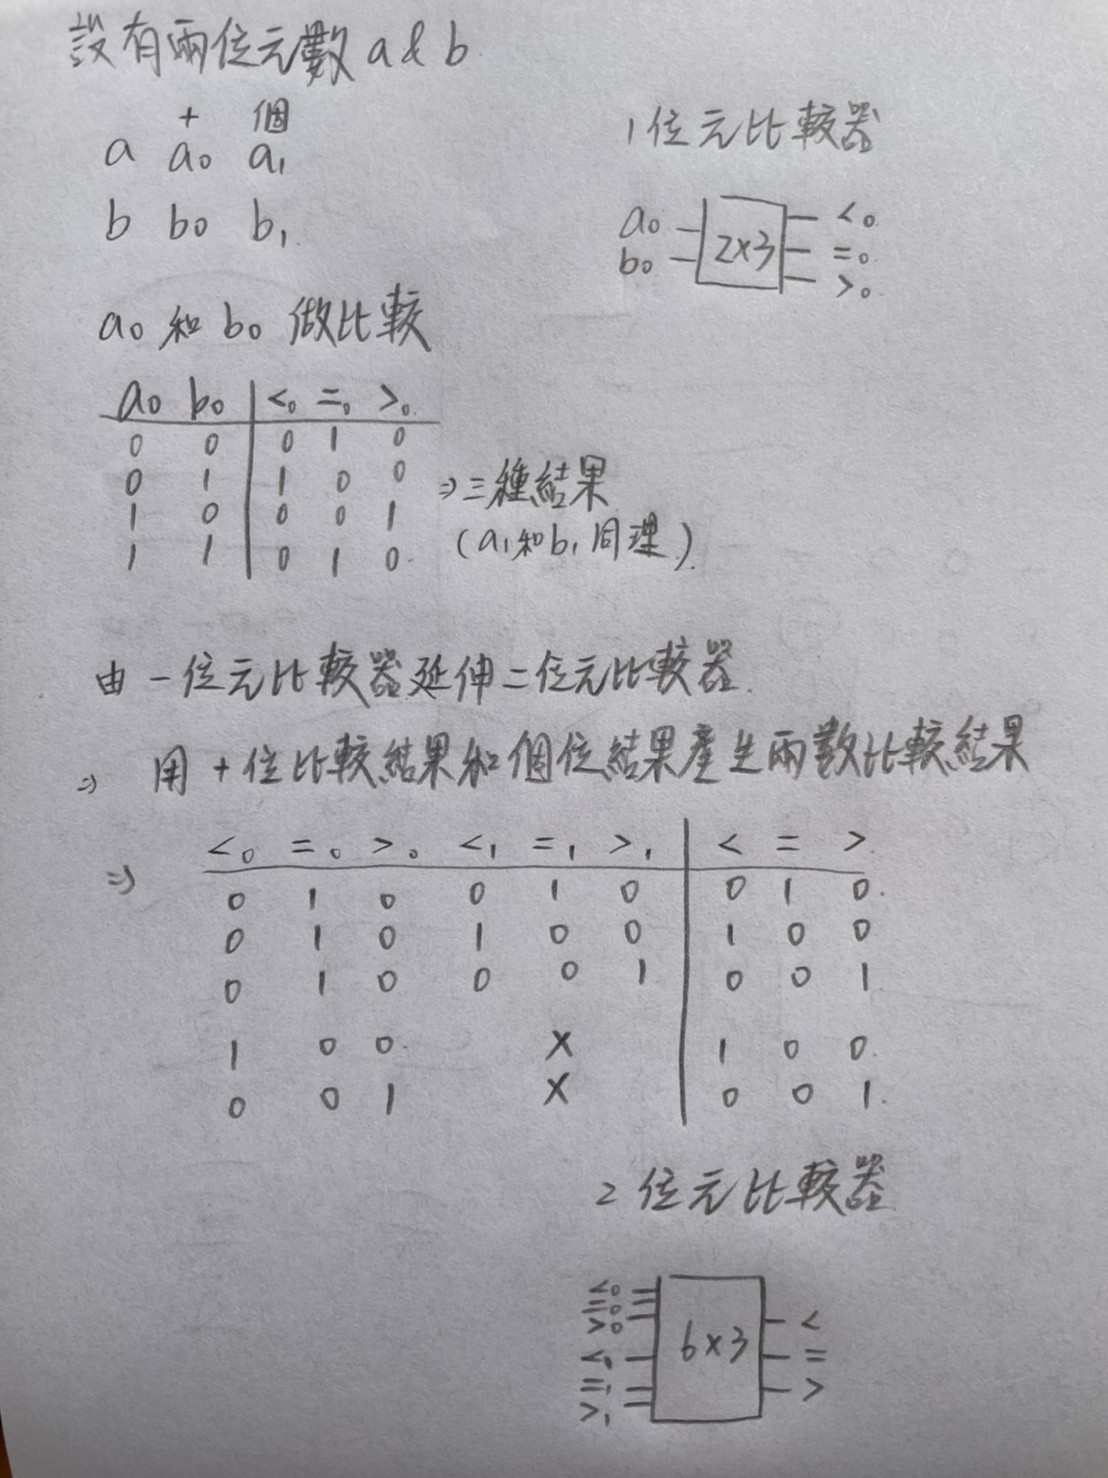 設有兩位元數 a & b.
十 個
a a₀ a₁
b b₀ b₁
1位元比較器
a₀ <₀
b₀ 2×3 =₀
>₀
a₀ 和 b₀ 做比較
a₀ b₀ <₀ =₀ >₀
0 0 0 1 0
0 1 1 0 0
1 0 0 0 1
1 1 0 1 0
⇒ 三種結果
(a₁和b₁同理)
由一位元比較器延伸二位元比較器.
⇒ 用十位比較結果和個位結果產生兩數比較結果
⇒ <₀ =₀ >₀ <₁ =₁ >₁ < = >
0 1 0 0 1 0 0 1 0
0 1 0 1 0 0 1 0 0
0 1 0 0 0 1 0 0 1
1 0 0 X 1 0 0
0 0 1 X 0 0 1
2位元比較器
<₀
=₀
>₀
<₁
=₁
>₁
6×3
<
=
>